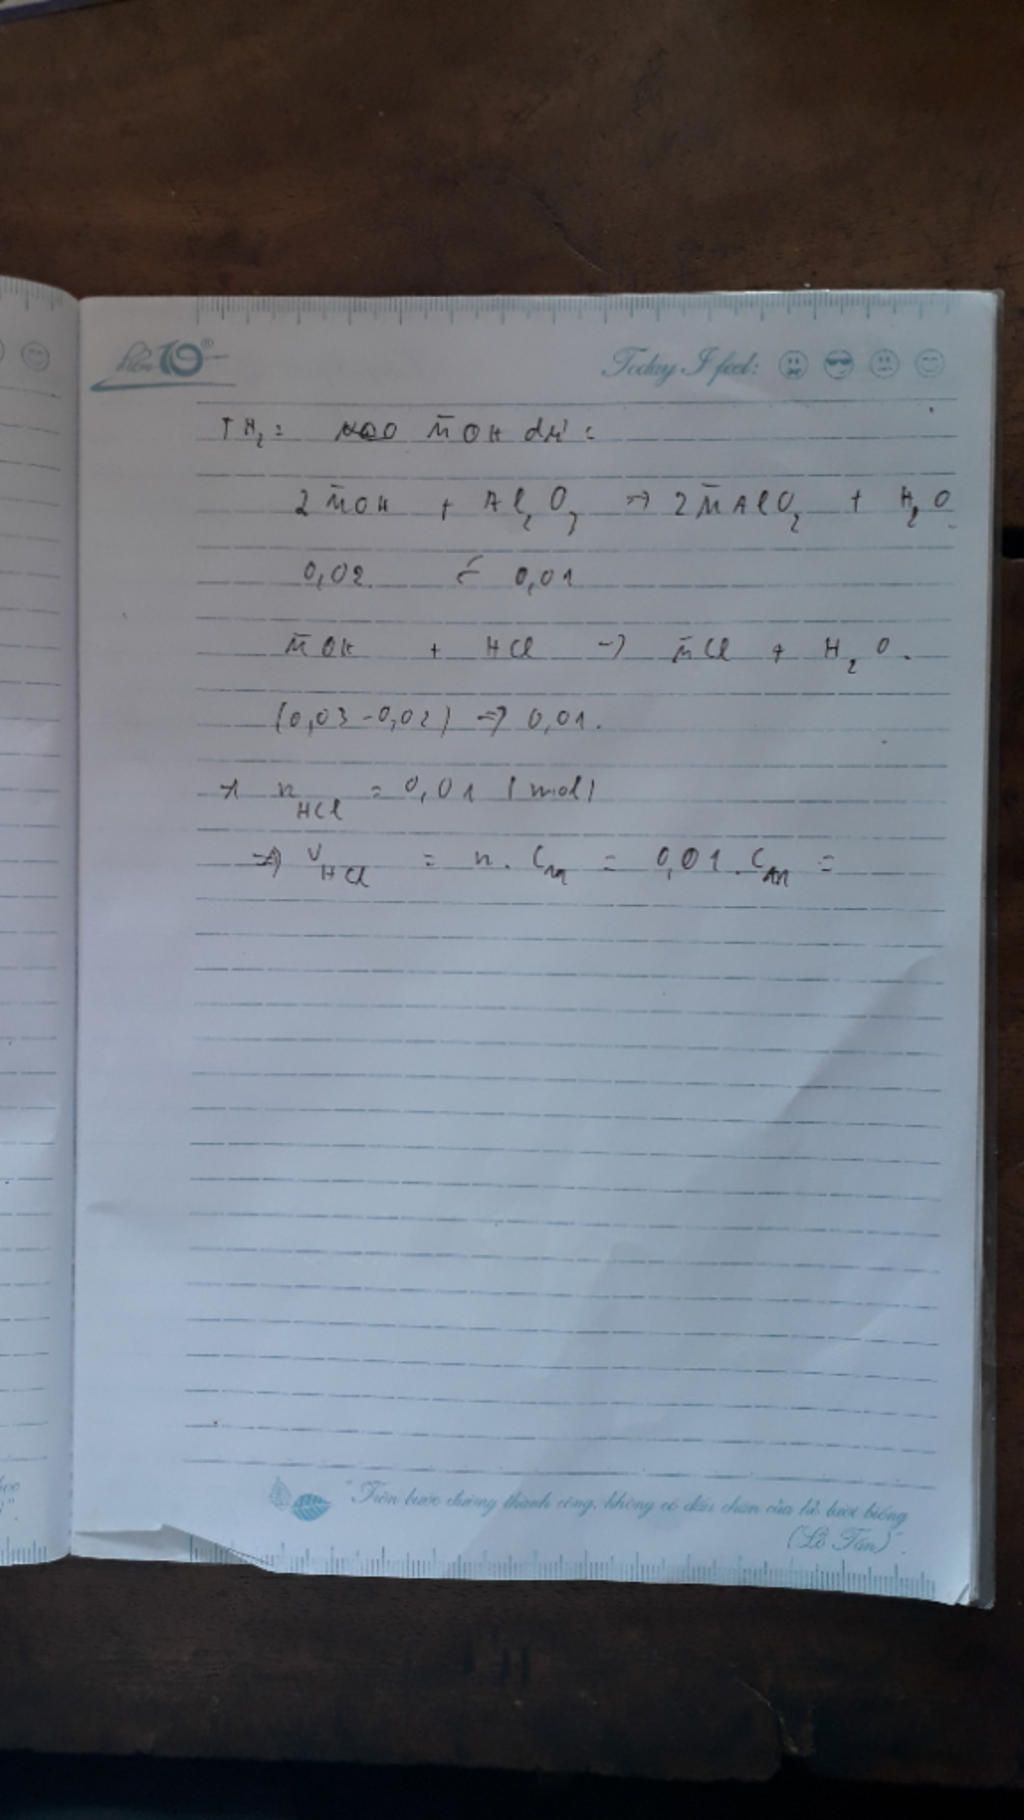 điểm 10®
Today I feel:
TH₂: M̄OH dư:
2M̄OH + Al₂O₃ → 2M̄AlO₂ + H₂O
0,02 ← 0,01
M̄OH + HCl → M̄Cl + H₂O.
(0,03 - 0,02) → 0,01.
n HCl = 0,01 (mol)
=> V HCl = n. C_M = 0,01. C_M =
"Trên bước đường thành công, không có dấu chân của kẻ lười biếng
(Lỗ Tấn)".